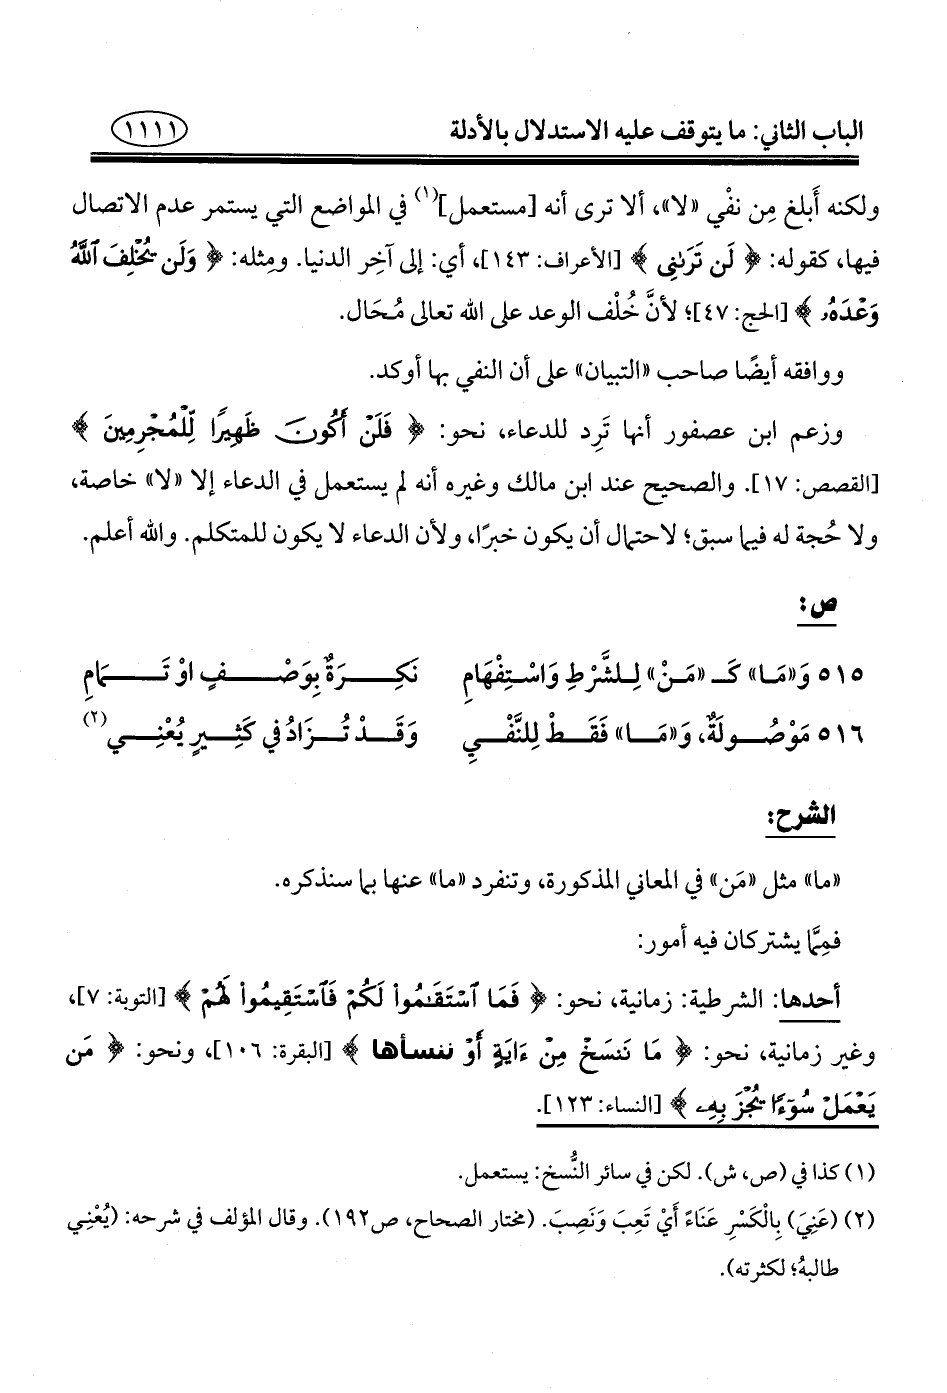 الباب الثاني: ما يتوقف عليه الاستدلال بالأدلة ١١١١
ولكنه أَبلغ مِن نفْي «لا»، ألا ترى أنه [مستعمل](١) في المواضع التي يستمر عدم الاتصال
فيها، كقوله: ﴿ لَن تَرَىٰنِى ﴾ [الأعراف: ١٤٣]، أي: إلى آخِر الدنيا. ومِثله: ﴿ وَلَن يُخْلِفَ ٱللَّهُ
وَعْدَهُۥ ﴾ [الحج: ٤٧]؛ لأنَّ خُلْف الوعد على الله تعالى مُحَال.
ووافقه أيضًا صاحب «التبيان» على أن النفي بها أوكد.
وزعم ابن عصفور أنها تَرِد للدعاء، نحو: ﴿ فَلَنْ أَكُونَ ظَهِيرًا لِّلْمُجْرِمِينَ ﴾
[القصص: ١٧]. والصحيح عند ابن مالك وغيره أنه لم يستعمل في الدعاء إلا «لا» خاصة،
ولا حُجة له فيما سبق؛ لاحتمال أن يكون خبرًا، ولأن الدعاء لا يكون للمتكلم. والله أعلم.
ص:
٥١٥ وَ«مَا» كَـ «مَنْ» لِلشَّرْطِ وَاسْتِفْهَامِ نَكِرَةٌ بِوَصْفٍ اوْ تَمَامِ
٥١٦ مَوْصُولَةٌ، وَ«مَا» فَقَطْ لِلنَّفْيِ وَقَدْ تُزَادُ في كَثِيرٍ يُعْنِي(٢)
الشرح:
«ما» مثل «مَن» في المعاني المذكورة، وتنفرد «ما» عنها بما سنذكره.
فمِمَّا يشتركان فيه أمور:
أحدها: الشرطية: زمانية، نحو: ﴿ فَمَا ٱسْتَقَـٰمُوا۟ لَكُمْ فَٱسْتَقِيمُوا۟ لَهُمْ ﴾ [التوبة: ٧]،
وغير زمانية، نحو: ﴿ مَا نَنسَخْ مِنْ ءَايَةٍ أَوْ ننسأها ﴾ [البقرة: ١٠٦]، ونحو: ﴿ مَن
يَعْمَلْ سُوٓءًا يُجْزَ بِهِۦ ﴾ [النساء: ١٢٣].
(١) كذا في (ص، ش). لكن في سائر النُّسخ: يستعمل.
(٢) (عَنِيَ) بِالْكَسْرِ عَنَاءً أَيْ تَعِبَ وَنَصِبَ. (مختار الصحاح، ص١٩٢). وقال المؤلف في شرحه: (يُعْنِي
طالبهُ؛ لكثرته).